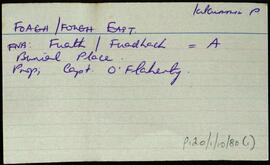 Kilcummin P
FOAGH / FORGH EAST.
FNA: Fuath / Fuadhach = A
Burial Place.
Prop, Capt. O'Flaherty.
P.20/1/10/80(1)